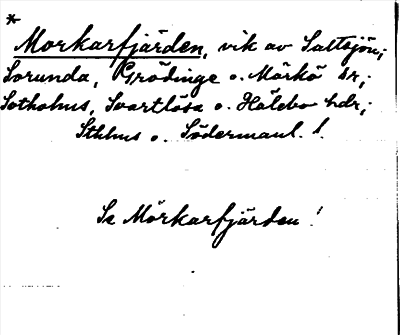 *
Morkarfjärden, vik av Saltsjön;
Sorunda, Grödinge o. Mörkö sr,;
Sotholms, Svartlösa o. Hölebo hdr,;
Sthlms o. Södermanl. l.
Se Mörkarfjärden!